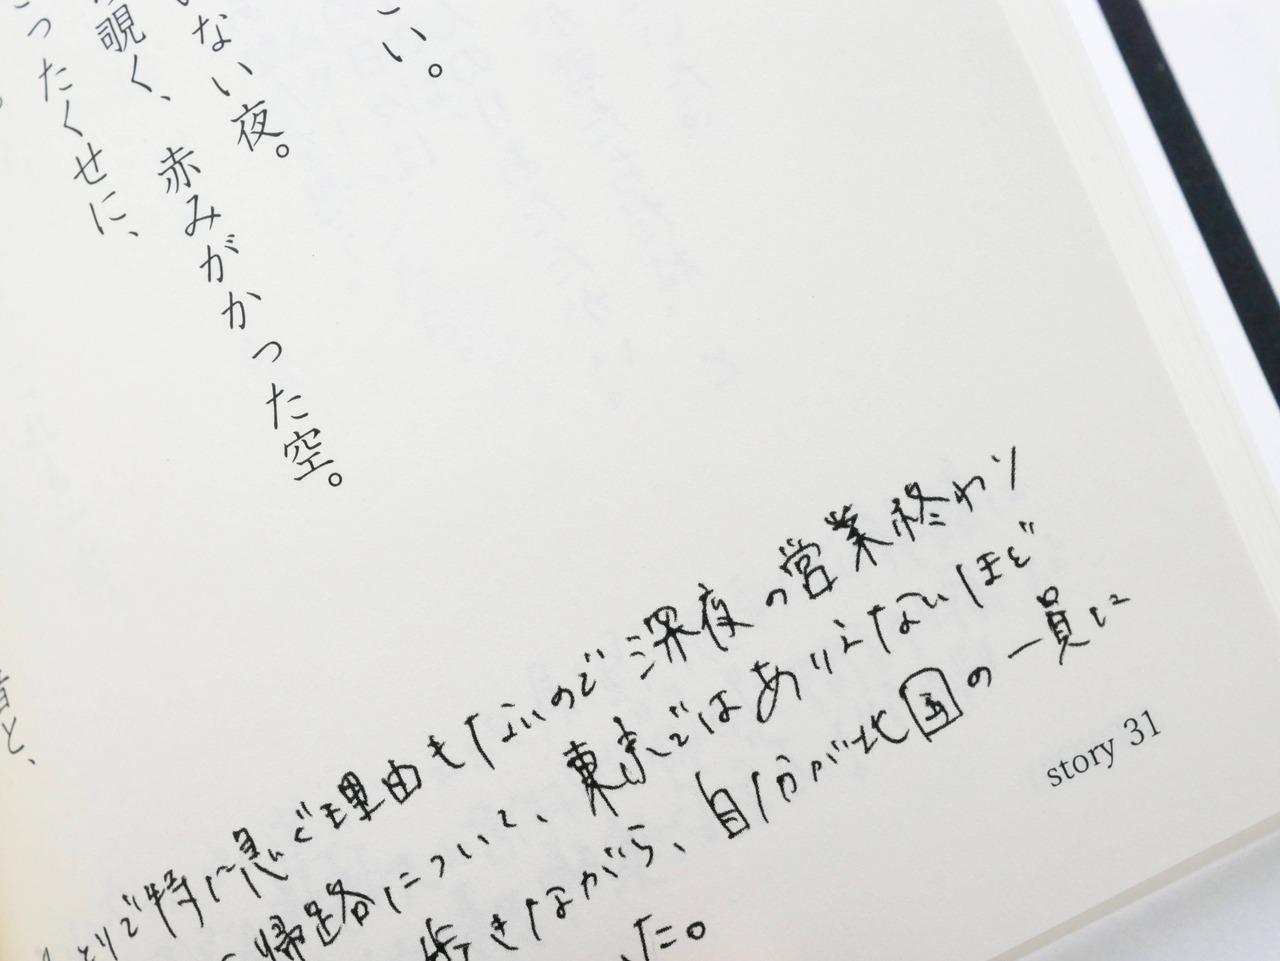 い。
ない夜。
覗く、赤みがかった空。
ったくせに、
と、
とりで特に急ぐ理由もないので深夜の営業終わり
帰路について、東京ではありえないほど
歩きながら、自分が北国の一員に
た。
story 31